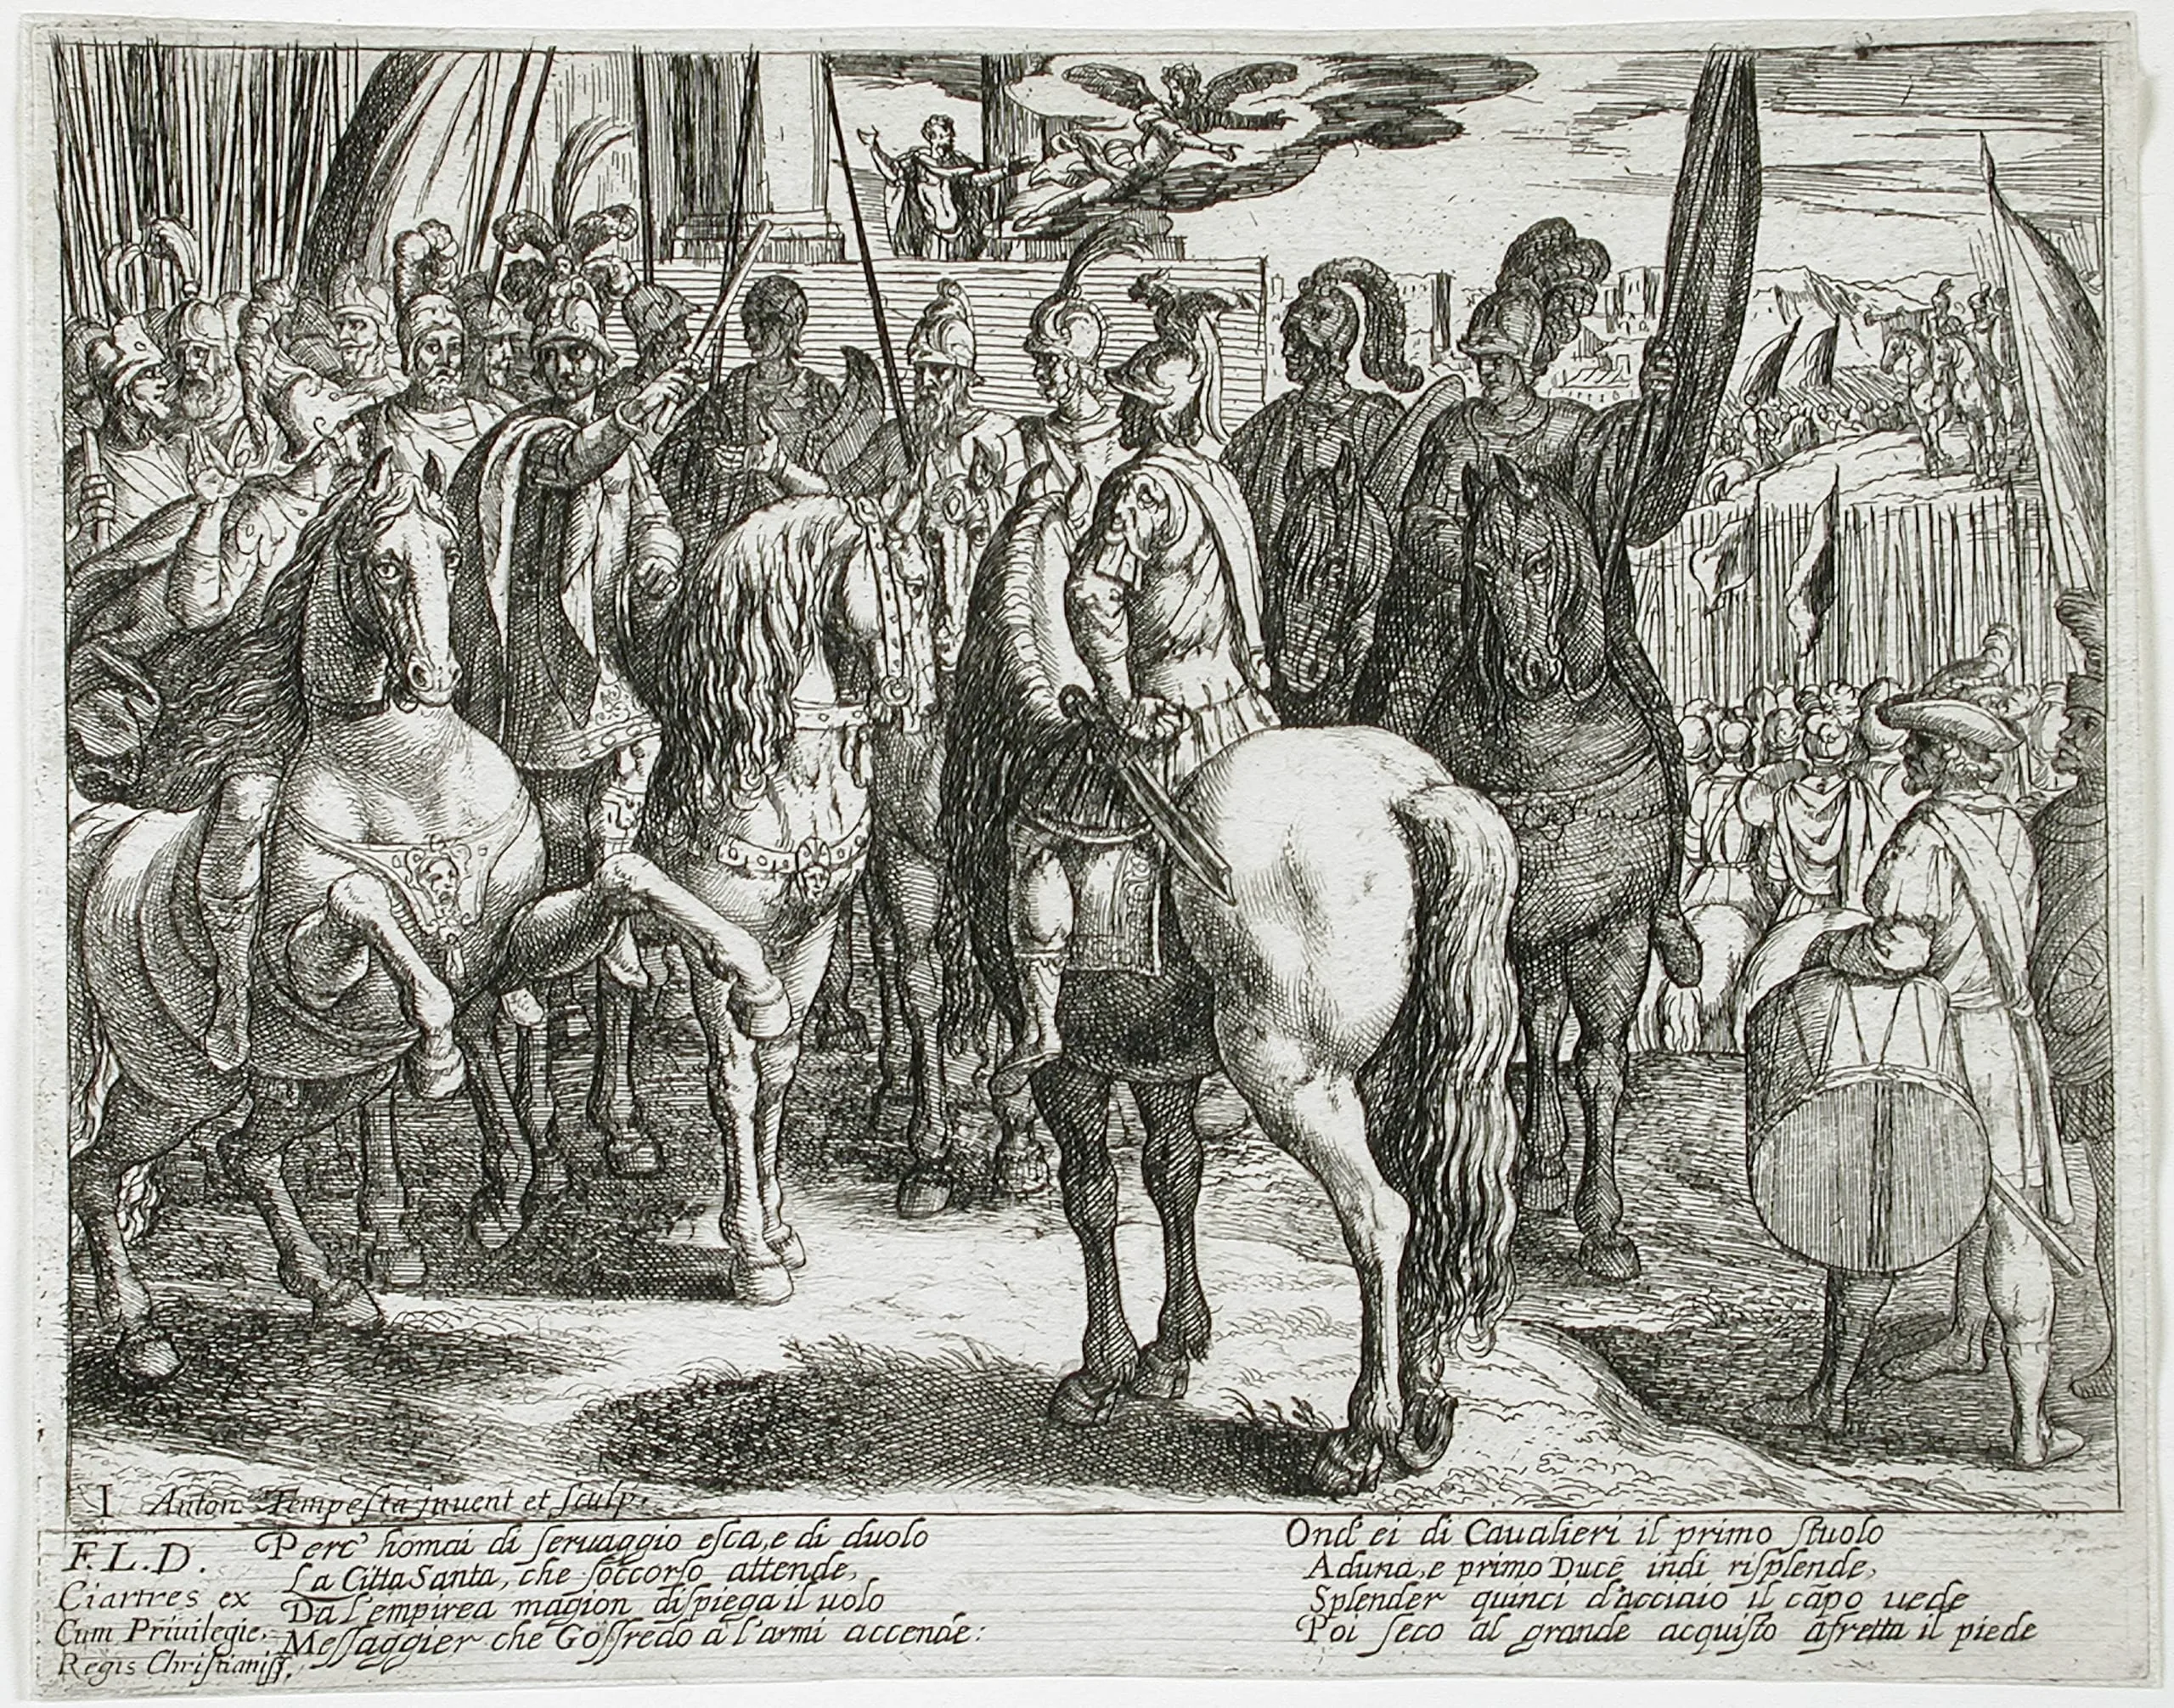 I Anton Tempesta inuent et sculp.
F. L. D.
Ciartres ex
Cum Priuilegie.
Regis Christianiss.
Perc' homai di seruaggio esca, e di duolo
La Citta Santa, che soccorso attende,
Da l'empirea magion dispiega il uolo
Messaggier che Goffredo a l'armi accende:
Ond' ei di Caualieri il primo stuolo
Aduna, e primo Duce indi risplende,
Splender quinci d'acciaio il cãpo uede
Poi seco al grande acquisto afretta il piede